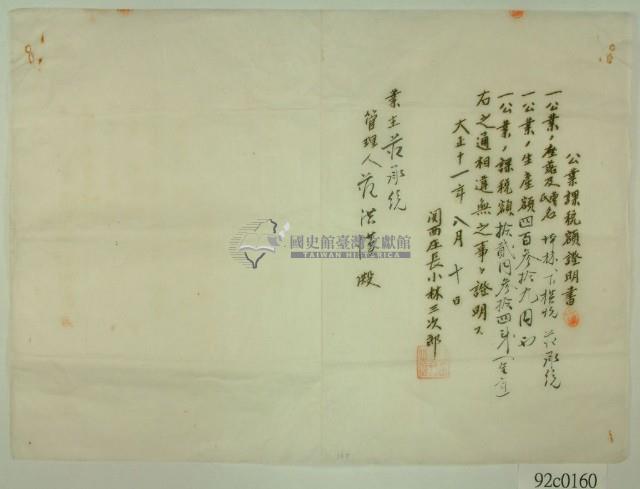 公業課稅額證明書
一公業ノ座落及種名 坪林 下橫坑 范承統
一公業ノ生產額四百參拾九円也
一公業ノ課稅額拾貳円參拾四錢
右之通相違無之事ヲ證明ス
大正十一年八月十日
関西庄長小林三次郎
業主范承統
管理人范洪 殿
國史館臺灣文獻館
TAIWAN HISTORICA
92c0160